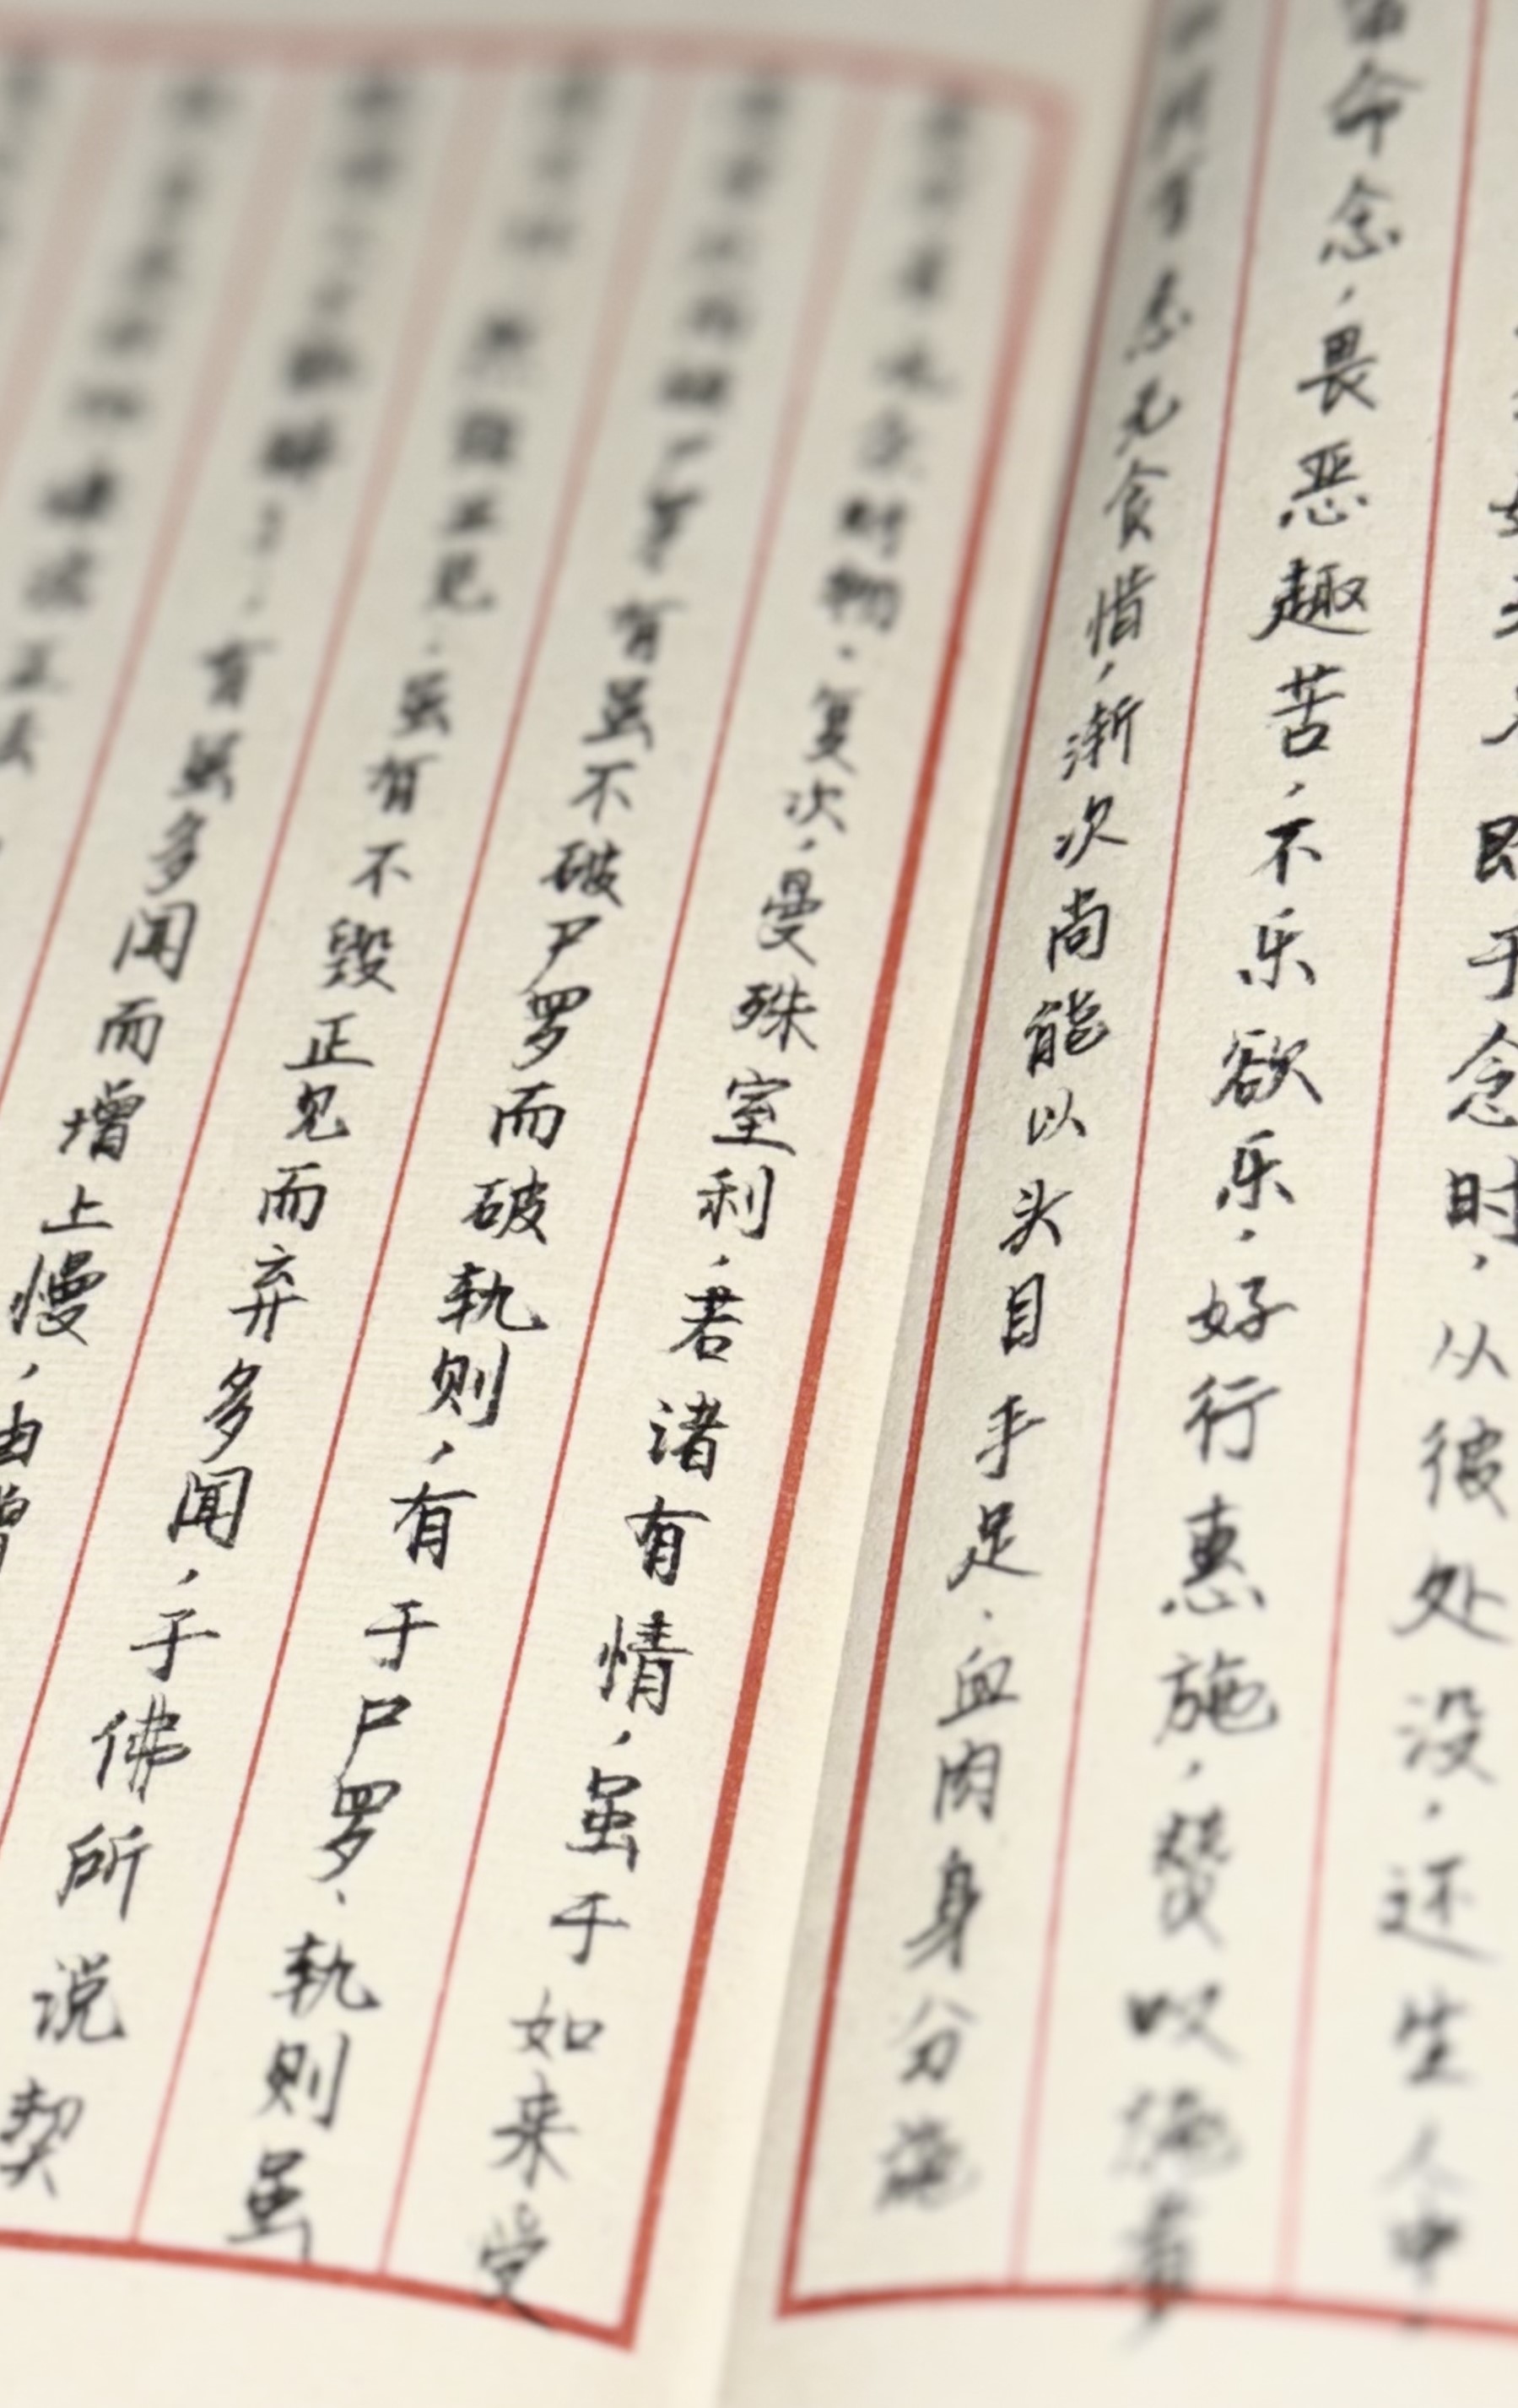 即于念时,从彼处没,还生人中
命念,畏恶趣苦,不乐欲乐,好行惠施,赞叹施者
悉无贪惜,渐次尚能以头目手足、血肉身分施
财物。复次,曼殊室利,若诸有情,虽于如来受
破尸罗有虽不破尸罗而破轨则,有于尸罗、轨则虽
毁正见、虽有不毁正见而弃多闻,于佛所说契
解了,有虽多闻而增上慢,由增
嫌谤正法